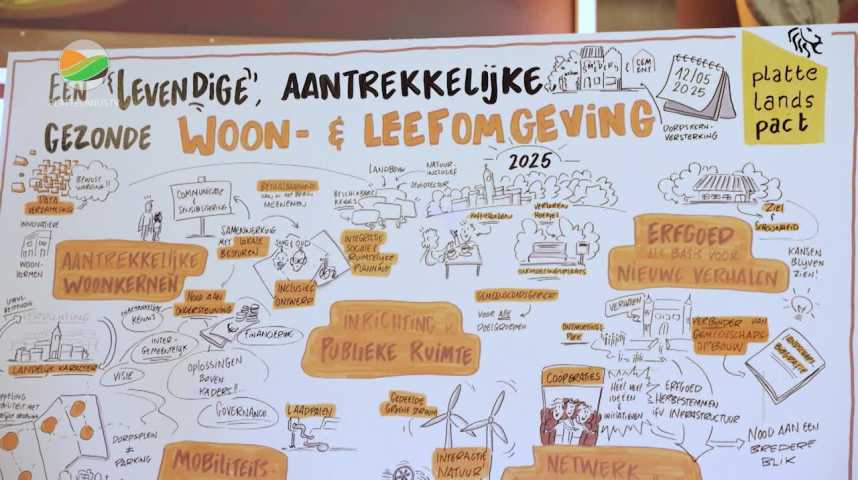 EEN "LEVENDIGE", AANTREKKELIJKE
GEZONDE WOON- & LEEFOMGEVING
PLATTELANDSTV
12/05
2025
DORPSKERN-
VERSTERKING
platte
lands
pact
2025
BEWUST
WORDING!!
DATA
VERZAMELING
INNOVATIEVE
WOON-
VORMEN
COMMUNICATIE
&
SENSIBILISERING
MEENEMEN
SAMENWERKING
MET LOKALE
BESTUREN
JONG & OUD
INCLUSIEF
ONTWERP
LANDBOUW
NATUUR-
INCLUSIEF
BESCHIKBARE
KENNIS
INTEGRALE
SOCIALE &
RUIMTELIJKE
PLANNING
KOFFIEKLETSEN
VERLOREN
HOEKJES
ONTMOETINGSPLAATS
ZIEL
&
SCHOONHEID
AANTREKKELIJKE
WOONKERNEN
ERFGOED
ALS BASIS VOOR
NIEUWE VERHALEN
KANSEN
BLIJVEN
ZIEN!
NOOD AAN
ONDERSTEUNING
FINANCIEEL
INTER-
GEMEENTELIJK
VISIE
OPLOSSINGEN
BOVEN
KADERS!!
GOVERNANCE
VERDICHTING
LANDELIJK KARAKTER
INRICHTING
PUBLIEKE RUIMTE
GEMEENSCHAPSGERICHT
VOOR ALLE
DOELGROEPEN
VERBINDER VAN
GEMEENSCHAPS-
OPBOUW
COÖPERATIES
HEEL VEEL
IDEEËN
&
INITIATIEVEN
ERFGOED
HERBESTEMMEN
IFV INFRASTRUCTUUR
NOOD AAN EEN
BREDERE
BLIK
LAADPALEN
GEDEELDE
DORPSPLEIN
≠
PARKING
MOBILITEITS
INTERACTIE
NATUUR
NETWERK